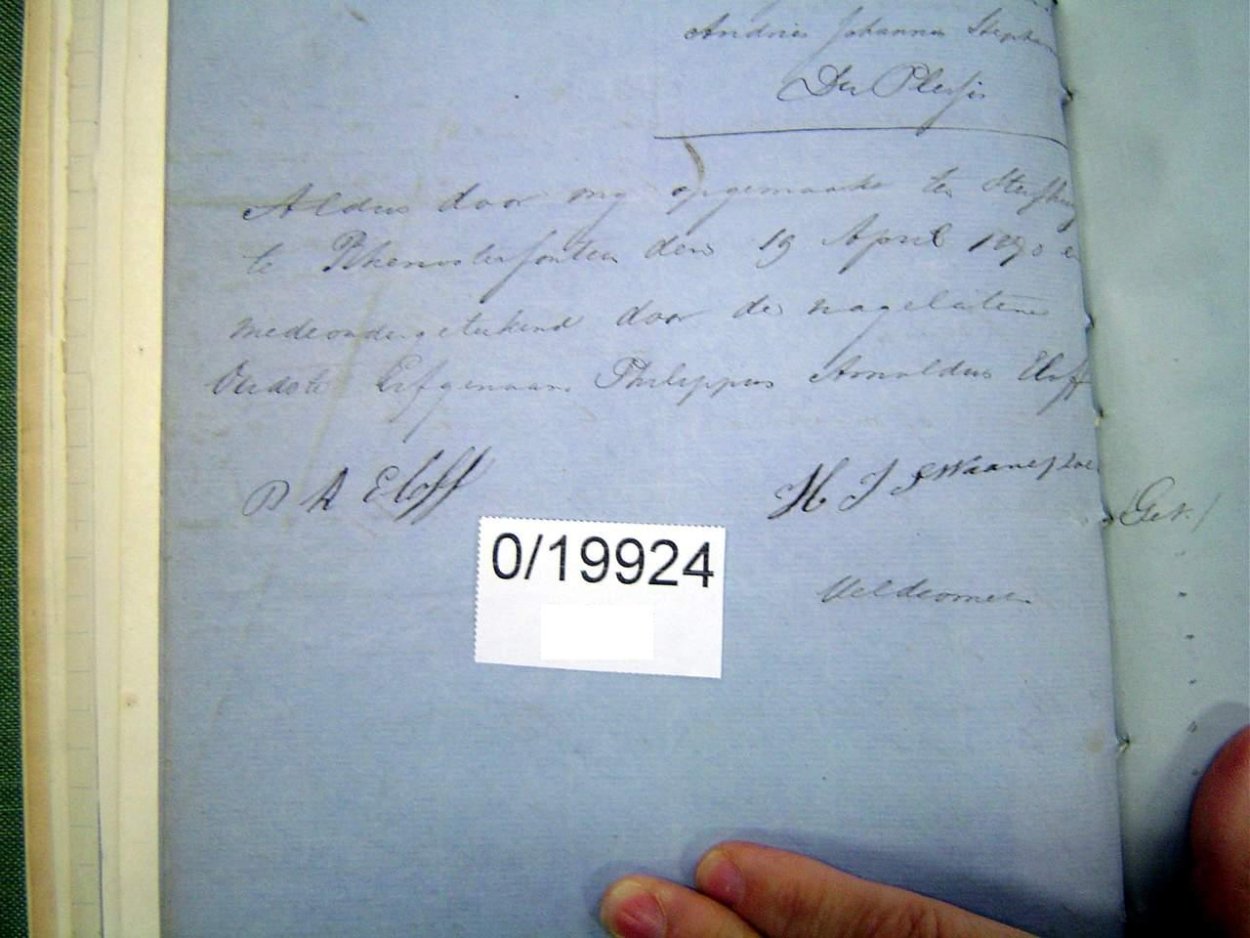 Andries Johannes Stephan
Du Plessis
Aldus door my opgemaakt ten Sterfhuize
te Rhenosterfontein den 19 April 1870
medeondergetekend door de nagelatene
Oudste Erfgenaam Philippus Arnoldus Eloff
P A Eloff
H J Swanepoel
Get.
0/19924
Veldcornet